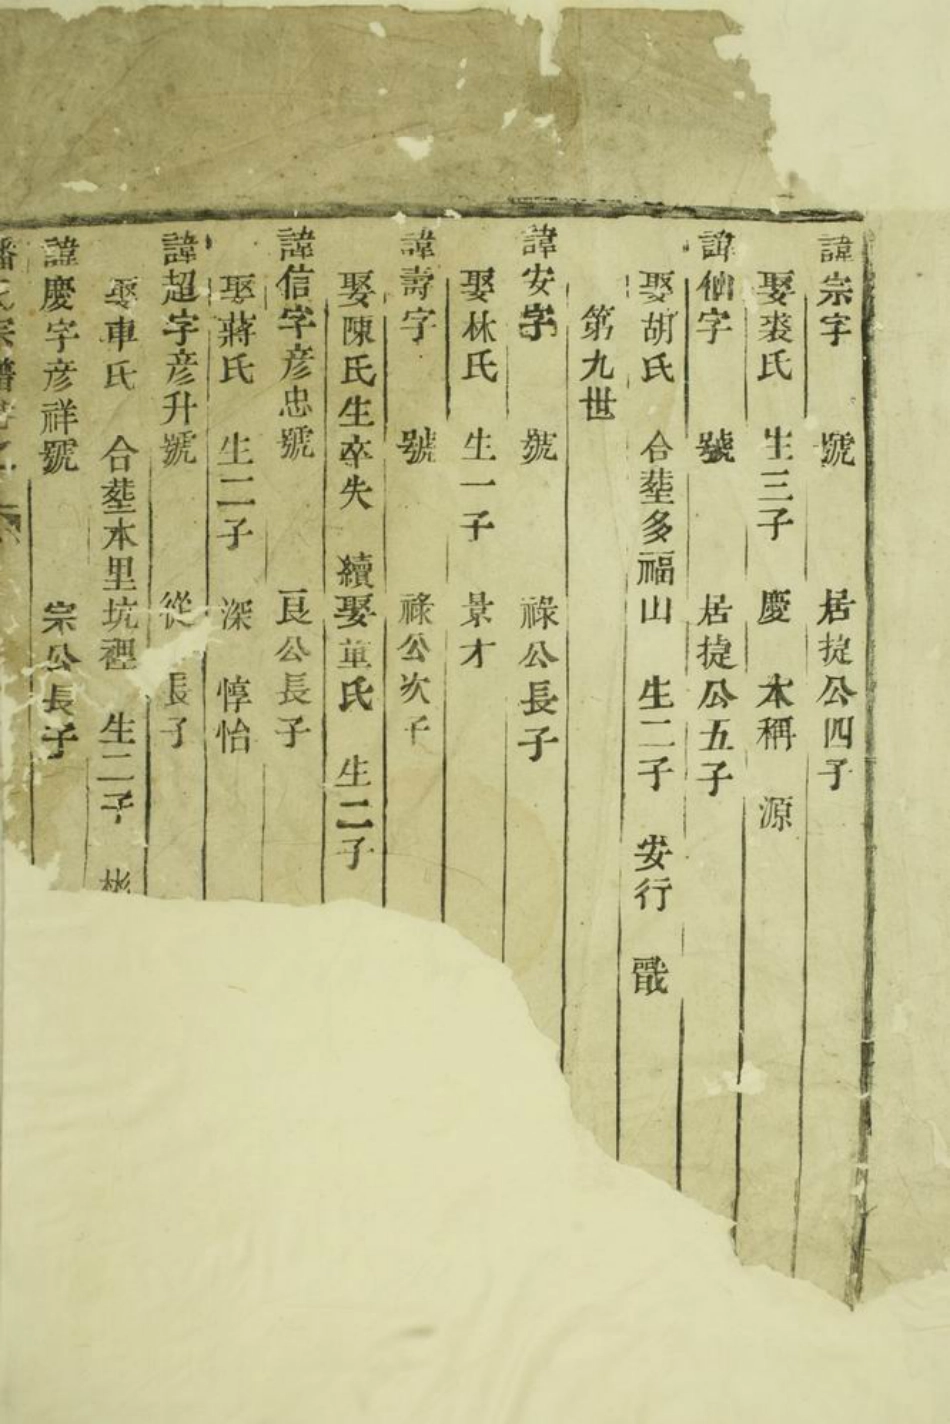 諱宗字 號 居㨗公四子
娶裘氏 生三子 慶 本稱 源
諱仙字 號 居㨗公五子
娶胡氏 合塟多福山 生二子 安行 戩
第九世
諱安字 號 祿公長子
娶林氏 生一子 景才
諱壽字 號 祿公次子
娶陳氏生卒失 續娶童氏 生二子
諱信字彥忠號 良公長子
娶蔣氏 生二子 深 惇怡
諱超字彥升號 從 長子
娶車氏 合塟本里坑裡 生二子 彬
諱慶字彥祥號 宗公長子
潘氏宗譜卷之